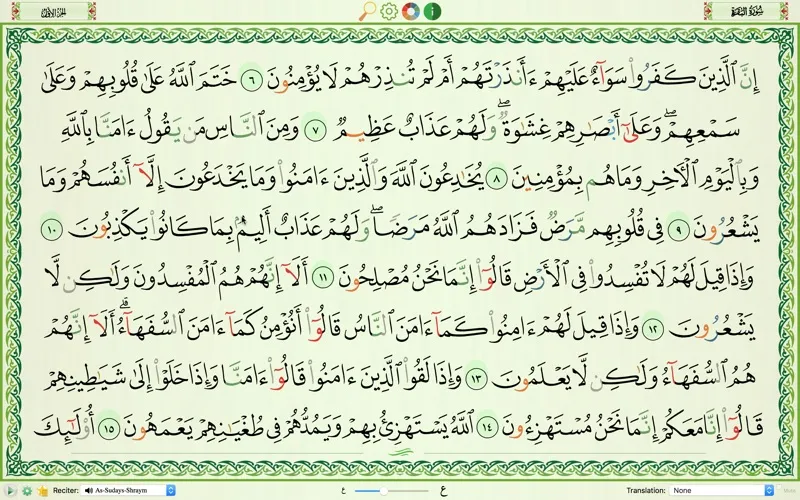 الجزء الأول
سورة البقرة
إِنَّ ٱلَّذِينَ كَفَرُوا۟ سَوَآءٌ عَلَيْهِمْ ءَأَنذَرْتَهُمْ أَمْ لَمْ تُنذِرْهُمْ لَا يُؤْمِنُونَ ٦ خَتَمَ ٱللَّهُ عَلَىٰ قُلُوبِهِمْ وَعَلَىٰ
سَمْعِهِمْ ۖ وَعَلَىٰٓ أَبْصَٰرِهِمْ غِشَٰوَةٌ ۖ وَلَهُمْ عَذَابٌ عَظِيمٌ ٧ وَمِنَ ٱلنَّاسِ مَن يَقُولُ ءَامَنَّا بِٱللَّهِ
وَبِٱلْيَوْمِ ٱلْءَاخِرِ وَمَا هُم بِمُؤْمِنِينَ ٨ يُخَٰدِعُونَ ٱللَّهَ وَٱلَّذِينَ ءَامَنُوا۟ وَمَا يَخْدَعُونَ إِلَّآ أَنفُسَهُمْ وَمَا
يَشْعُرُونَ ٩ فِى قُلُوبِهِم مَّرَضٌ فَزَادَهُمُ ٱللَّهُ مَرَضًا ۖ وَلَهُمْ عَذَابٌ أَلِيمٌۢ بِمَا كَانُوا۟ يَكْذِبُونَ ١٠
وَإِذَا قِيلَ لَهُمْ لَا تُفْسِدُوا۟ فِى ٱلْأَرْضِ قَالُوٓا۟ إِنَّمَا نَحْنُ مُصْلِحُونَ ١١ أَلَآ إِنَّهُمْ هُمُ ٱلْمُفْسِدُونَ وَلَٰكِن لَّا
يَشْعُرُونَ ١٢ وَإِذَا قِيلَ لَهُمْ ءَامِنُوا۟ كَمَآ ءَامَنَ ٱلنَّاسُ قَالُوٓا۟ أَنُؤْمِنُ كَمَآ ءَامَنَ ٱلسُّفَهَآءُ ۗ أَلَآ إِنَّهُمْ
هُمُ ٱلسُّفَهَآءُ وَلَٰكِن لَّا يَعْلَمُونَ ١٣ وَإِذَا لَقُوا۟ ٱلَّذِينَ ءَامَنُوا۟ قَالُوٓا۟ ءَامَنَّا وَإِذَا خَلَوْا۟ إِلَىٰ شَيَٰطِينِهِمْ
قَالُوٓا۟ إِنَّا مَعَكُمْ إِنَّمَا نَحْنُ مُسْتَهْزِءُونَ ١٤ ٱللَّهُ يَسْتَهْزِئُ بِهِمْ وَيَمُدُّهُمْ فِى طُغْيَٰنِهِمْ يَعْمَهُونَ ١٥ أُو۟لَٰٓئِكَ
Reciter: As-Sudays-Shraym ع ع Translation: None